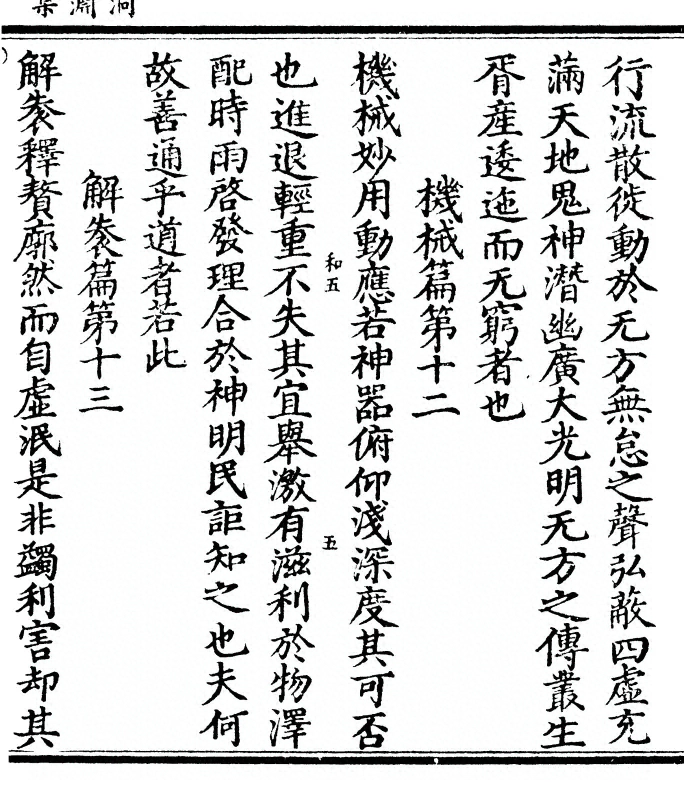 洞淵集
行流散徙動於无方無怠之聲弘敞四虛充
滿天地鬼神潛幽廣大光明无方之傳叢生
胥産逶迤而无窮者也
機械篇第十二
機械妙用動應若神器俯仰淺深度其可否
和五
五
也進退輕重不失其宜舉激有滋利於物澤
配時雨啓發理合於神明民詎知之也夫何
故善通乎道者若此
解袠篇第十三
解袠釋贅廓然而自虛泯是非蠲利害却其